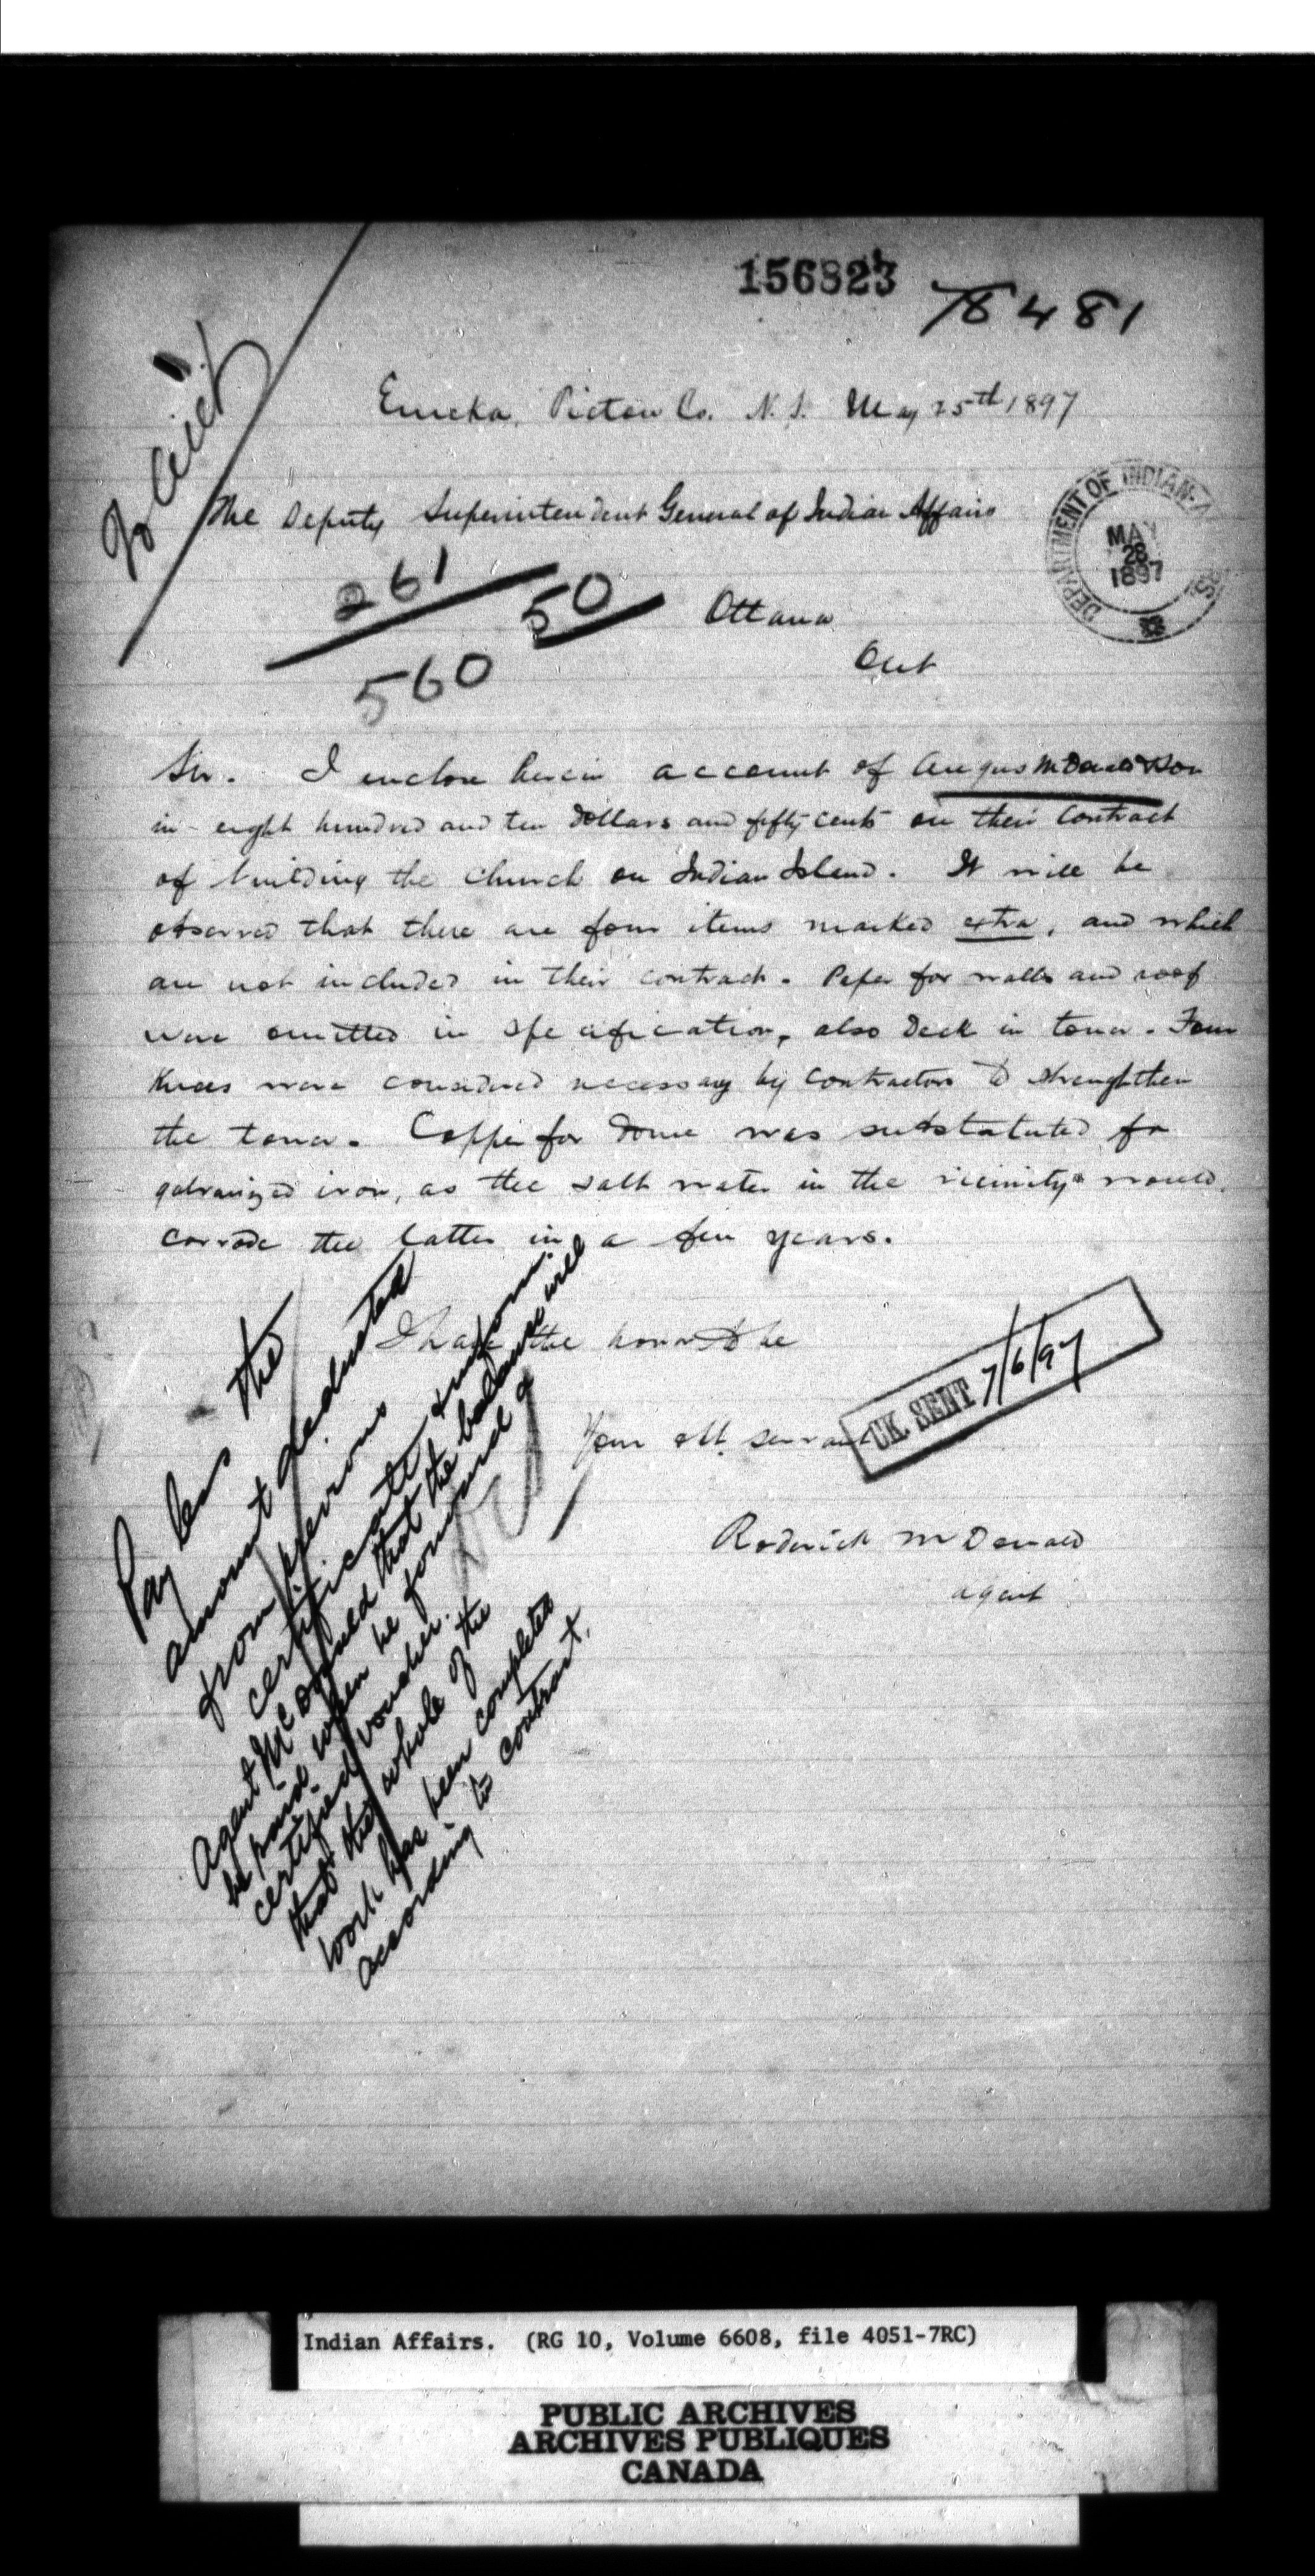 156823
78481
Eureka, Pictou Co. N.S. May 25th 1897
The Deputy Superintendent General of Indian Affairs
DEPARTMENT OF INDIAN A RS
MAY
28
1897
261
50
560
Ottawa
Ont
Sir. I enclose herein account of Angus McDonald & Son
in - eight hundred and ten dollars and fifty cents on their contract
of building the church on Indian Island. It will be
observed that there are four items marked extra, and which
are not included in their contract. Paper for walls and roof
were omitted in specification, also deck in tower. Four
knees were considered necessary by contractors to strenghthen
the tower. Copper for dome was substatuted for
galvanized iron, as the salt water in the vicinity would
corrode the latter in a few years.
I have the honor to be
Your obt. servant
CK. SENT 7/6/97
Roderick McDonald
agent
Pay less the
amount deducted
from previous
certificate & inform
Agent McDonald that the balance will
be paid when he forward a
certified voucher
that the whole of the
work has been completed
according to contract.
Indian Affairs. (RG 10, Volume 6608, file 4051-7RC)
PUBLIC ARCHIVES
ARCHIVES PUBLIQUES
CANADA